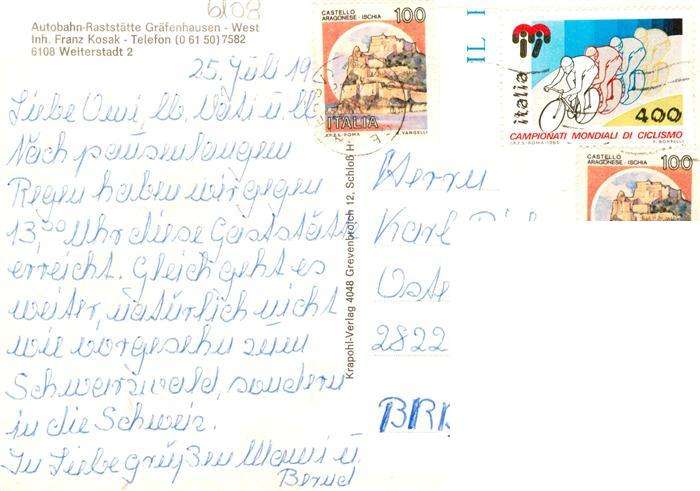 6108
Autobahn-Raststätte Gräfenhausen - West
Inh. Franz Kosak - Telefon (0 61 50) 7582
6108 Weiterstadt 2
25. Juli 19
Liebe Omi, lb. Vati u. lb.
Nach pausenlangen
Regen haben wir gegen
13,00 Uhr diese Gaststätte
erreicht. Gleich geht es
weiter, natürlich nicht
wie vorgesehn zum
Schwarzwald, sondern
in die Schweiz.
In Liebe grüßen Mami u.
Bernd
Krapohl-Verlag 4048 Grevenbroich 12, Schloß H
CASTELLO
ARAGONESE - ISCHIA
100
ITALIA
I.P.Z.S. ROMA
E. VANGELLI
IL I
italia
400
CAMPIONATI MONDIALI DI CICLISMO
I.P.Z.S. - ROMA - 1985
CASTELLO
ARAGONESE - ISCHIA
100
Herrn
Karl
Oste
2822
BRK